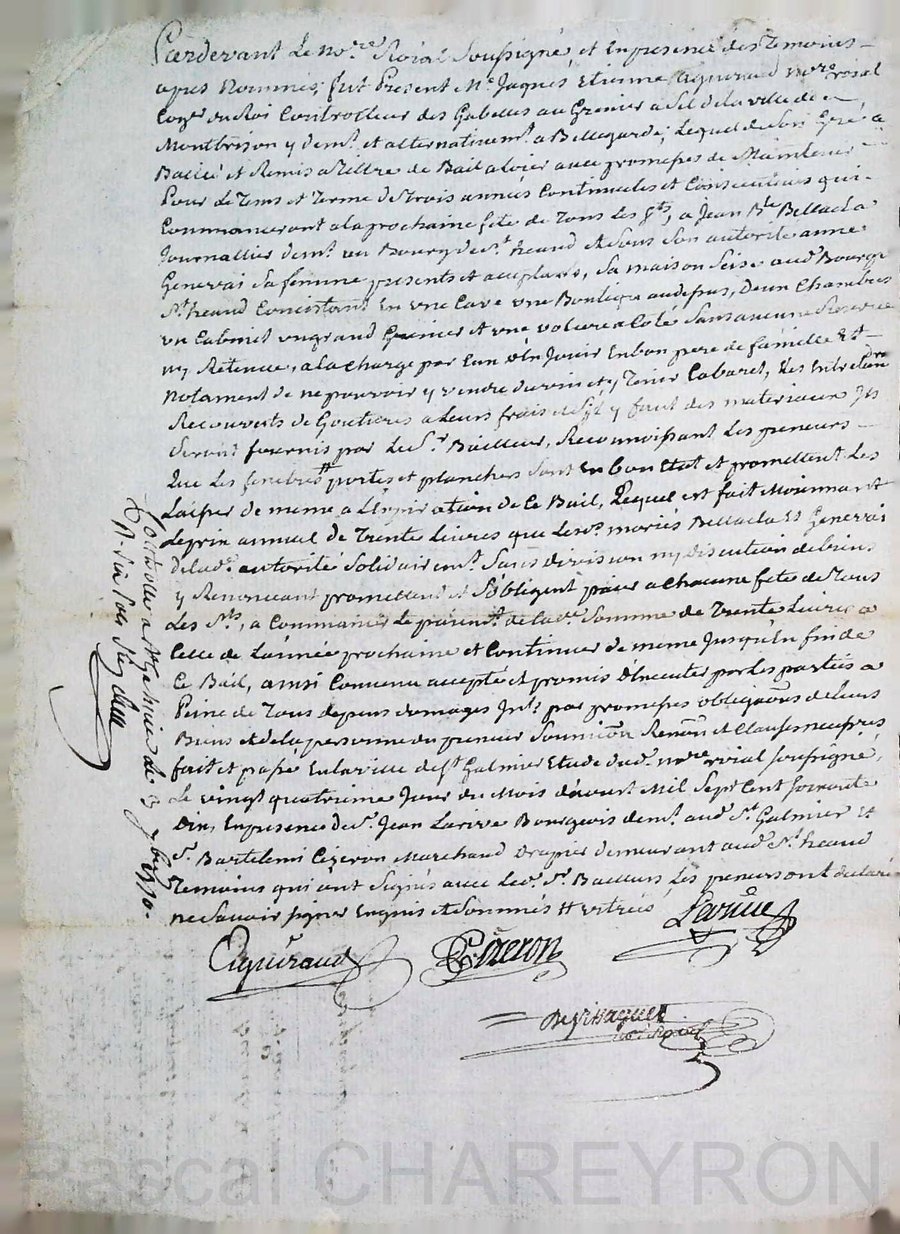 Pardevant Le no.re Roial Soussigné, et En presence des Temoins
apres Nommés, fut Present M.e Jaques Etienne Agniraud no.re roial
Con.er du Roi Controlleur des Gabelles au Grenier a Sel de la ville de
Montbrison y dem.t et alternativem.t a Bellegarde; Lequel de Son Gré a
Baillé et Remis a Tiltre de Bail a loier avec promesses de Maintenir
Pour Le Tems et Terme de Trois années Continuelles et Consecutives qui
Commanceront a la prochaine fete de Tous Les S.ts, a Jean B.te Bellacla
Journallier dem.t au Bourg de S.t heand et Sous Son autorité anne
Genevai Sa femme presents et acceptants, Sa maison Seise aud.t Bourg
S.t heand Concistant En une Cave une Boutique audessus, Deux Chambres
un Cabinet un grand Grenier et une voliere a Coté Sans aucune Reserve
ny Retenue, a la Charge par Eux d'En Jouir En bon pere de famille Et
notament de ne pouvoir y vendre du vin et y Tenir Cabaret, Les Entretiens
Recouverts de Goutieres a Leurs frais et S'il y faut des materiaux Ils
Seront fournis par Le S.r Bailleur, Reconnoissant Les preneurs
Que Les fenetres portes et planchers Sont En bon Etat et promettent Les
Laisser de meme a L'Expiration de Ce Bail, Lequel est fait Moiennant
Le prix annuel de Trente Livres que Lesd. mariés Bellacla Et Genevai
de lad.e autorité Solidairem.t Sans division ny discution de biens
y Renoncant promettent et S'obligent paier a Chacune fete de Tous
Les S.ts, a Commancer Le paiem.t de lad.e Somme de Trente Livres a
Celle de L'année prochaine et Continuer de meme Jusqu'En fin de
Ce Bail, ainsi Convenu accepté et promis d'Executer par Les parties a
Peine de Tous depens domages Int.ts par promesses obligaõns de leurs
Biens et de la personne du preneur Soumiõn Renõn et Clauses necess.res
fait et passé En la ville de S.t Galmier Etude dud. no.re roial soussigné,
Le vingt quatrieme Jour du Mois d'aoust Mil Sept Cent soixante
Dix, En presence de S.r Jean Larive Bourgeois dem.t aud. S.t Galmier Et
S.r Bartelemi Cizeron Marchand Drapier demeurant aud. S.t heand
Temoins qui ont Signés avec Led. S.r Bailleur, Les preneurs ont declaré
ne Savoir signer Enquis et Sommés
Agniraud Cizeron Larive
no.re Royal
Controllé a S.t de 3 7bre 1770.
R. Six Sols Six den
Pascal CHAREYRON